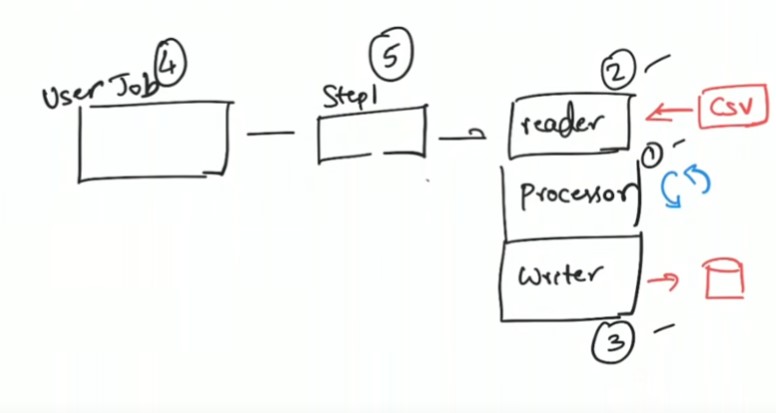 4
5
User Job
Step1
2
reader
CSV
1
Processor
Writer
3